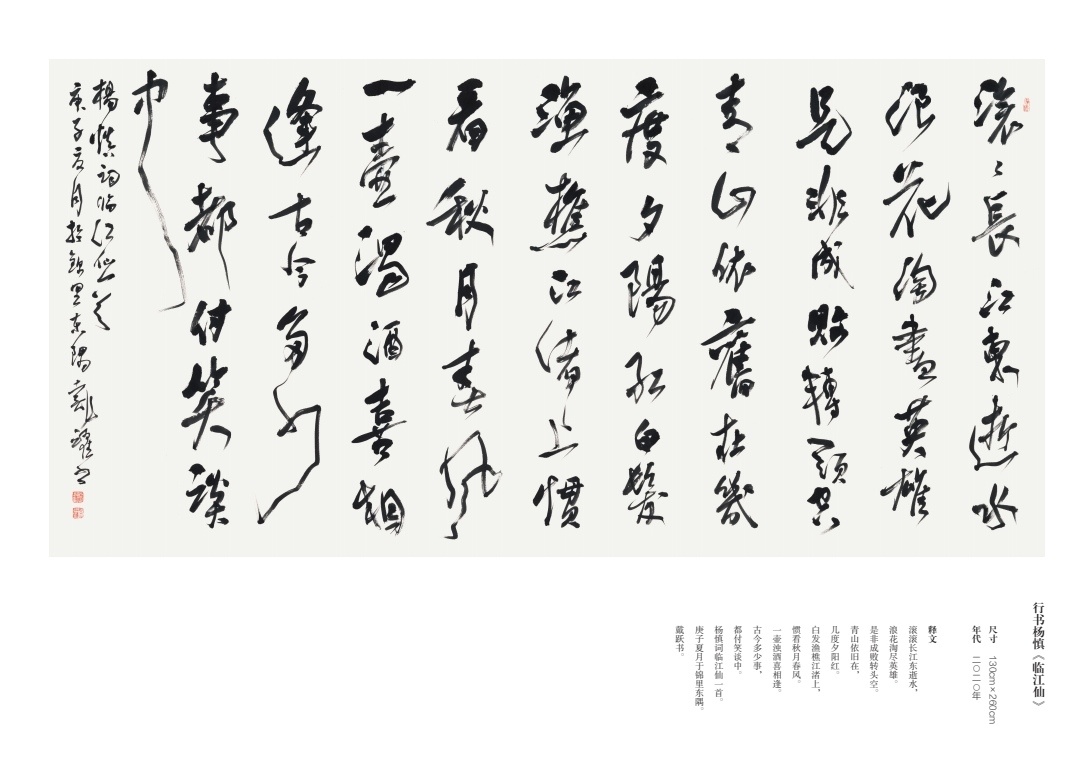 滾〻長江東逝水
浪花淘盡英雄
是非成敗轉頭空
青山依舊在幾
度夕陽紅白髮
漁樵江渚上慣
看秋月春風
一壺濁酒喜相
逢古今多少
事都付笑談
中
楊慎詞臨江仙一首
庚子夏月於錦里東隅戴躍書
行书杨慎《临江仙》
尺寸 130cm×260cm
年代 二〇二〇年
释文
滚滚长江东逝水，
浪花淘尽英雄。
是非成败转头空。
青山依旧在，
几度夕阳红。
白发渔樵江渚上，
惯看秋月春风。
一壶浊酒喜相逢。
古今多少事，
都付笑谈中。
杨慎词临江仙一首。
庚子夏月于锦里东隅。
戴跃书。